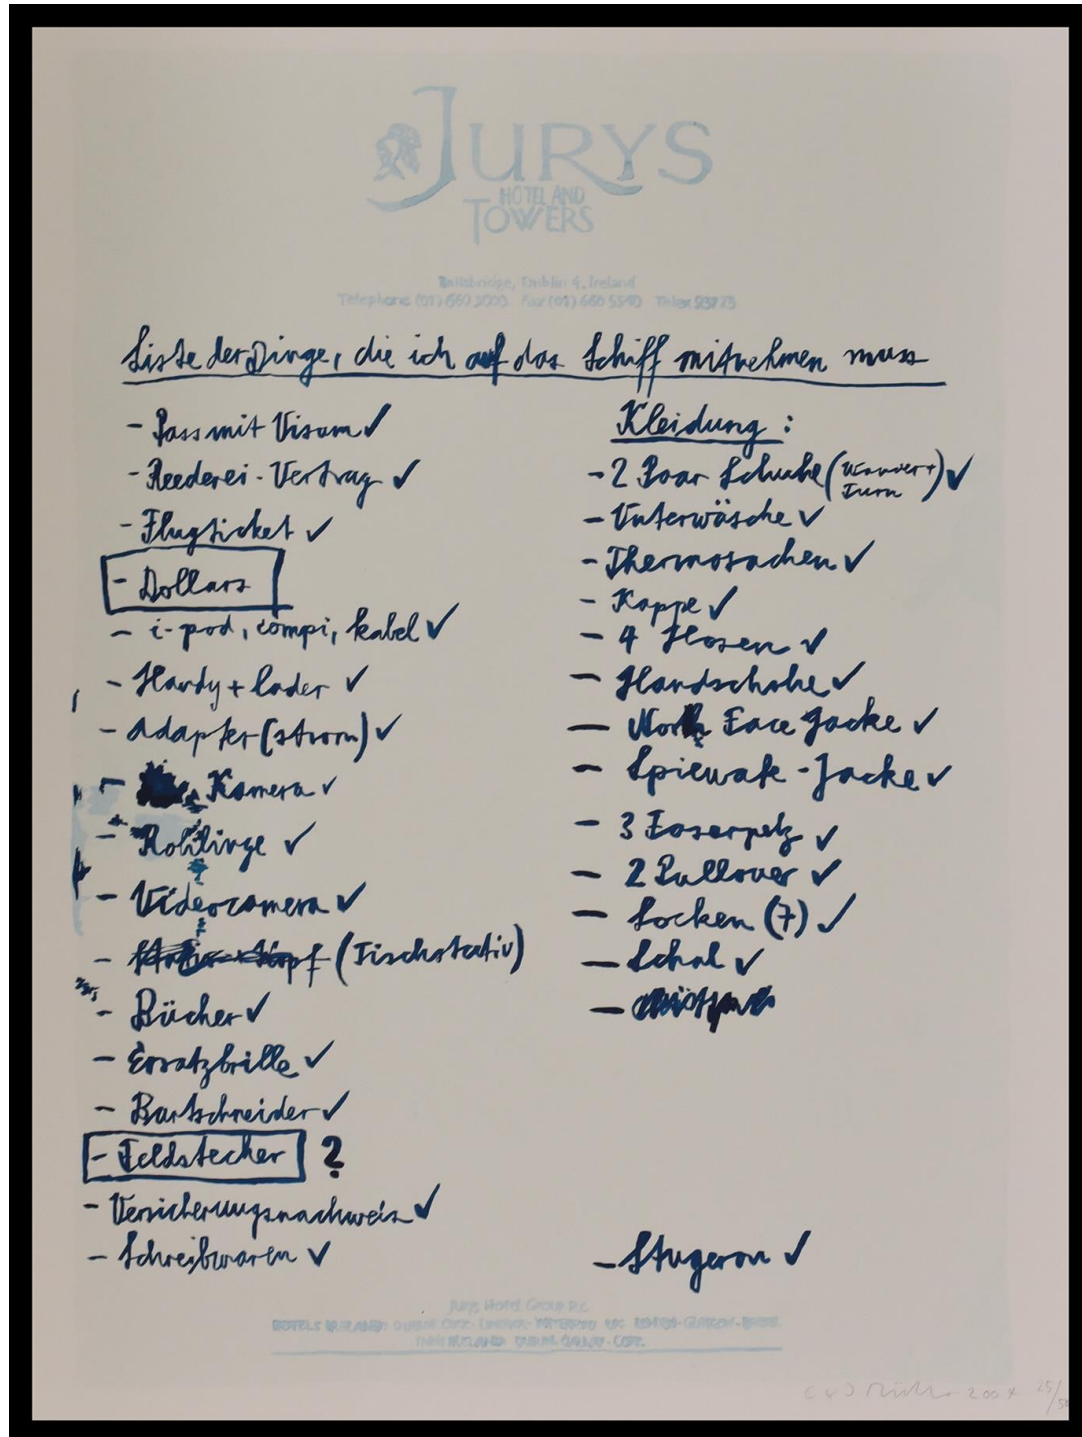 JURYS
HOTEL AND
TOWERS
Ballsbridge, Dublin 4, Ireland
Telephone (01) 660 5000 Fax (01) 660 5540 Telex 93723
Liste der Dinge, die ich auf das Schiff mitnehmen muss
- Pass mit Visum ✓
- Reederei-Vertrag ✓
- Flugticket ✓
- Dollars
- i-pod, compi, kabel ✓
- Handy + lader ✓
- Adapter (strom) ✓
- Kamera ✓
- Rohlinge ✓
- Videocamera ✓
- (Tischstativ)
- Bücher ✓
- Ersatzbrille ✓
- Bartschneider ✓
- Feldstecher ?
- Versicherungsnachweis ✓
- Schreibwaren ✓
Kleidung :
- 2 Paar Schuhe (Wander + Turn) ✓
- Unterwäsche ✓
- Thermosachen ✓
- Kappe ✓
- 4 Hosen ✓
- Handschuhe ✓
- North Face Jacke ✓
- Spiewak-Jacke ✓
- 3 Faserpelz ✓
- 2 Pullover ✓
- Socken (7) ✓
- Schal ✓
- Stugeron ✓
Jurys Hotel Group P.L.C.
2004 25/50